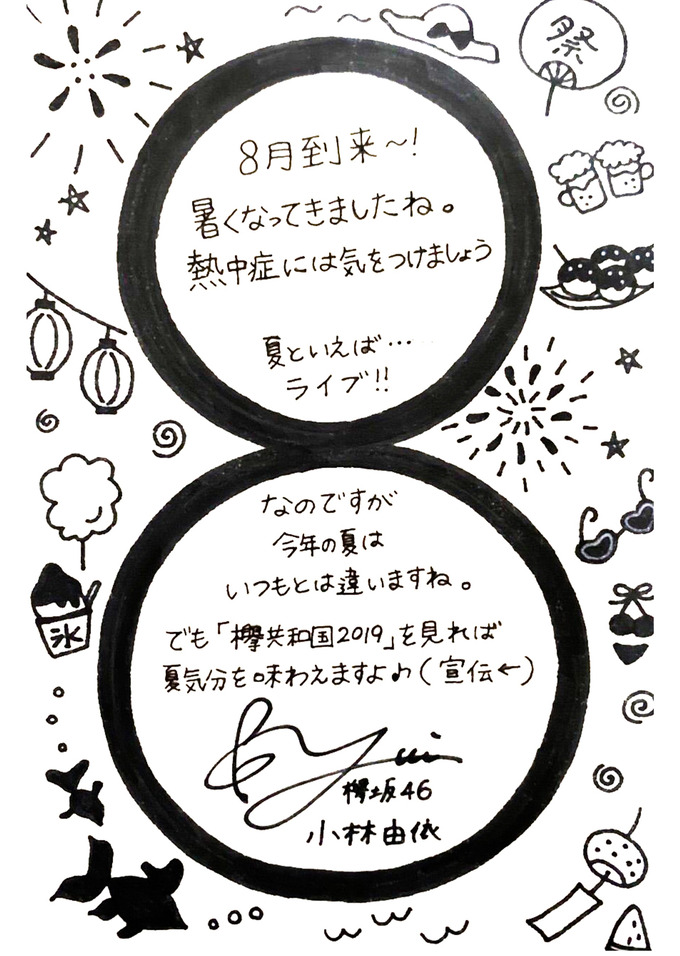 祭
8月到来〜!
暑くなってきましたね。
熱中症には気をつけましょう
夏といえば…
ライブ!!
なのですが
今年の夏は
いつもとは違いますね。
でも「欅共和国2019」を見れば
夏気分を味わえますよ♪(宣伝←)
氷
欅坂46
小林由依